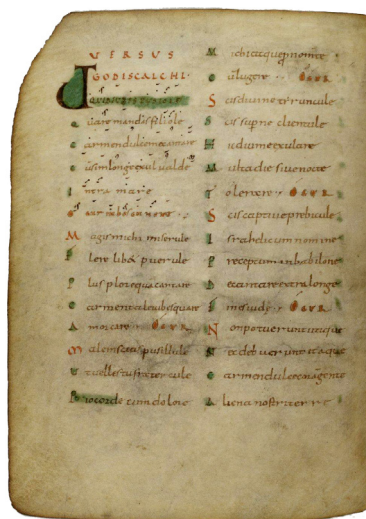 VERSUS
GODISCALCHI
UT QUID IUBES PUSIOLE
Quare mandas filiole
Carmen dulce me cantare
Cū sim longe exul valde
Intra mare
O cur iubes canere
Magis michi miserule
Flere libȩ puerule
Plus plorare quā cantare
Carmen tale iubes quare
Amor care O CUR
Mallem scias pusillule
Ut velles tu fratercule
Pio corde condolere
Michi atque prona mente
Conlugere O CUR
Scis divine tiruncule
Scis superne clientule
Hic diu me exulare
Multa die sive nocte
Tolerare O CUR
Scis captive plebicule
Israheli cum nomine
Preceptum in babilone
Decantare extra longe
Fines iude O CUR
Non potuerunt utique
Nec debuerunt itaque
Carmen dulce corā gente
Aliena nostri terre